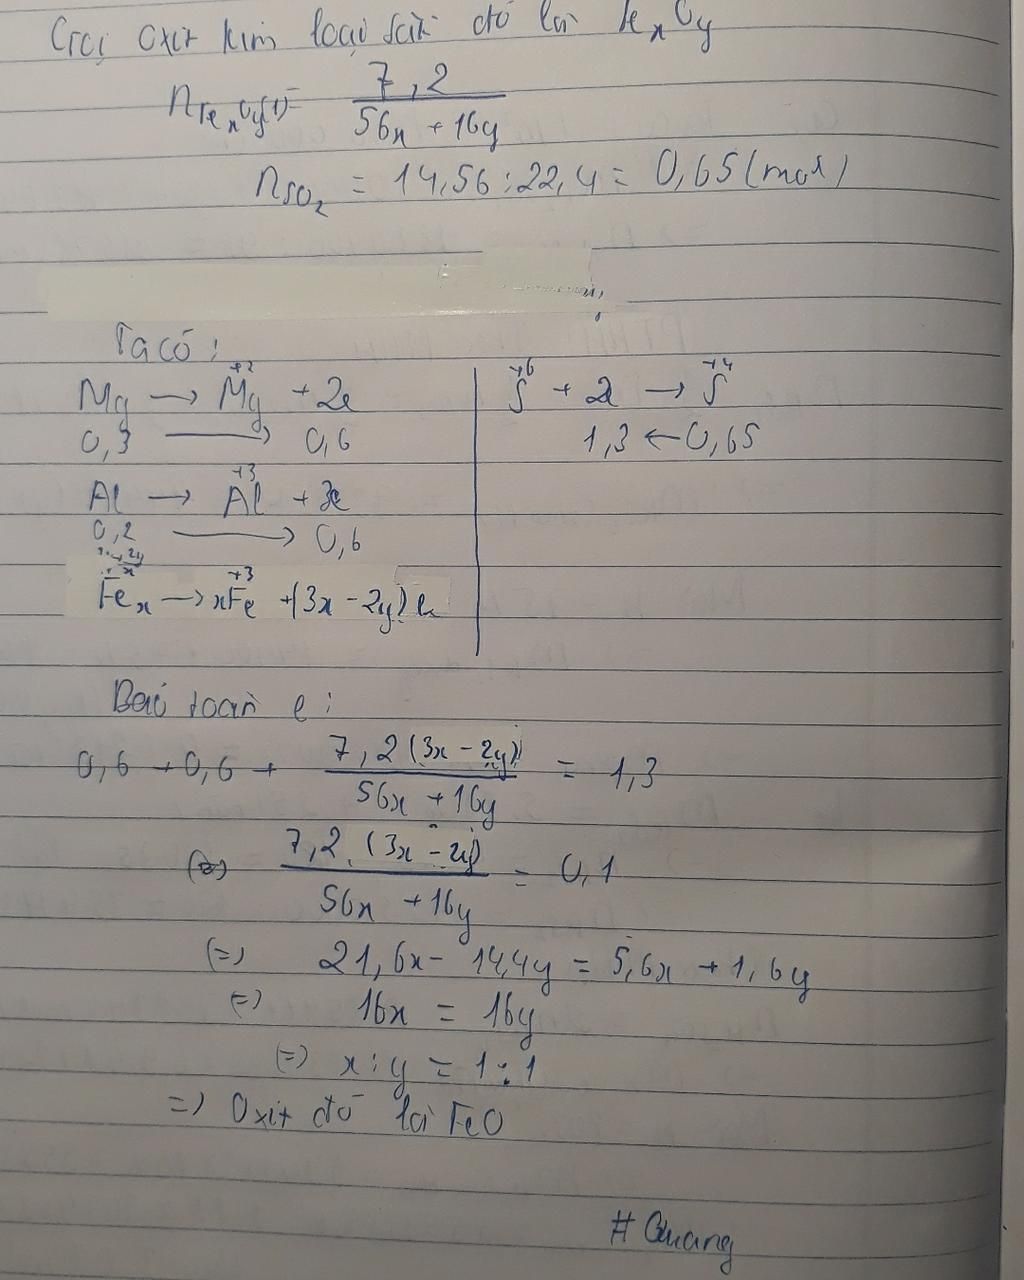 Gọi oxit kim loại sắt đó là FexOy
nFexOy(1) = 7,2 / (56x + 16y)
nSO2 = 14,56 : 22,4 = 0,65 (mol)
Ta có:
Mg → Mg+2 + 2e
0,3 → 0,6
Al → Al+3 + 3e
0,2 → 0,6
Fex → xFe+3 + (3x - 2y)e
S+6 + 2e → S+4
1,3 ← 0,65
Bảo toàn e:
0,6 + 0,6 + 7,2(3x - 2y) / (56x + 16y) = 1,3
(=) 7,2.(3x - 2y) / (56x + 16y) = 0,1
(=) 21,6x - 14,4y = 5,6x + 1,6y
(=) 16x = 16y
(=) x : y = 1 : 1
=) Oxit đó là FeO
# Quang